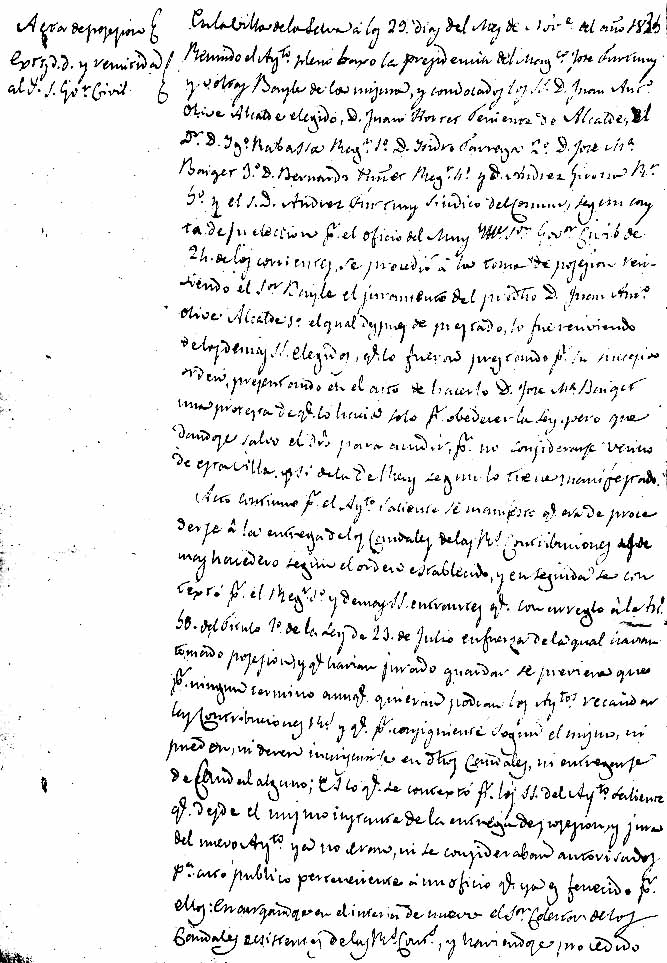 Acta de posesion
extrd.d. y remitida
al Y. S. Gov.r Civil.
En la Villa de la Selva á los 29. dias del Mes de Nov.e del año 1835
Reunido el Ay.to pleno baxo la presidencia del Mag.co Jose
y Bayle de la misma, y convocados los SS. D. Juan Ant.o
Olive Alcalde elegido, D. Juan Horres Teniente de Alcalde, el
D.r D. Ig.o Rabassa Reg.r 1.o D. Isidro Tarrega 2.o D. Jose M.a
Baiget 3.o D. Bernardo Reg.r 4.o y D. Andrez Girona R.r
5.o y el S. D. Andrez Sindico del Comun, segun cons
ta de su eleccion p.r el oficio del Muy Ill.e S.or Gov.or Civil de
24. de los corrientes, se procedió á la toma de posesion reci
viendo el S.or Bayle el juramento del predho D. Juan Ant.o
Olive Alcalde 1.o el qual despues de prestado, lo fue reciviendo
de los demas SS. elegidos, q.e lo fueron prestando p.r su succesivo
orden, presentando en el acto de hacerlo D. Jose M.a Baiget
una protesta de q.e lo hacia solo p.r obedecer la Ley, pero que
dandose salvo el dro para acudir, p.r no considerarse vecino
de esta Villa, y si de la de Reus segun lo tiene manifestado.
Acto continuo p.r el Ay.to saliente se manifestó q.e era de proce
derse á la entrega de los Caudales de las R.s Contribuciones
mas havedero segun el orden establecido, y en seguida se con
textó p.r el Reg.r 1.o y demas SS. entrantes q.e con arreglo á la Art.
50. del titulo 1.o de la Ley de 23. de Julio en fuerza de la qual havian
tomado posesion, y q.e havian jurado guardar se previene que
p.r ningun termino aunq.e quieran podran los Ay.tos recaudar
las Contribuciones R.s y q.e p.r consiguiente segun el mismo, ni
pueden, ni deven inmiscuirse en dhos Caudales, ni entregarse
de Caudal alguno; á lo q.e se contextó p.r los SS. del Ay.to saliente
q.e desde el mismo instante de la entrega de posesion, y jura
del nuevo Ay.to ya no eran, ni se consideraban autorisados
p.a acto publico perteneciente á un oficio q.e ya es fenecido p.r
ellos: encargandose en el interin de nuevo el S.or Colector de los
Caudales existentes de las R.s Cont.s, y haviendose procedido